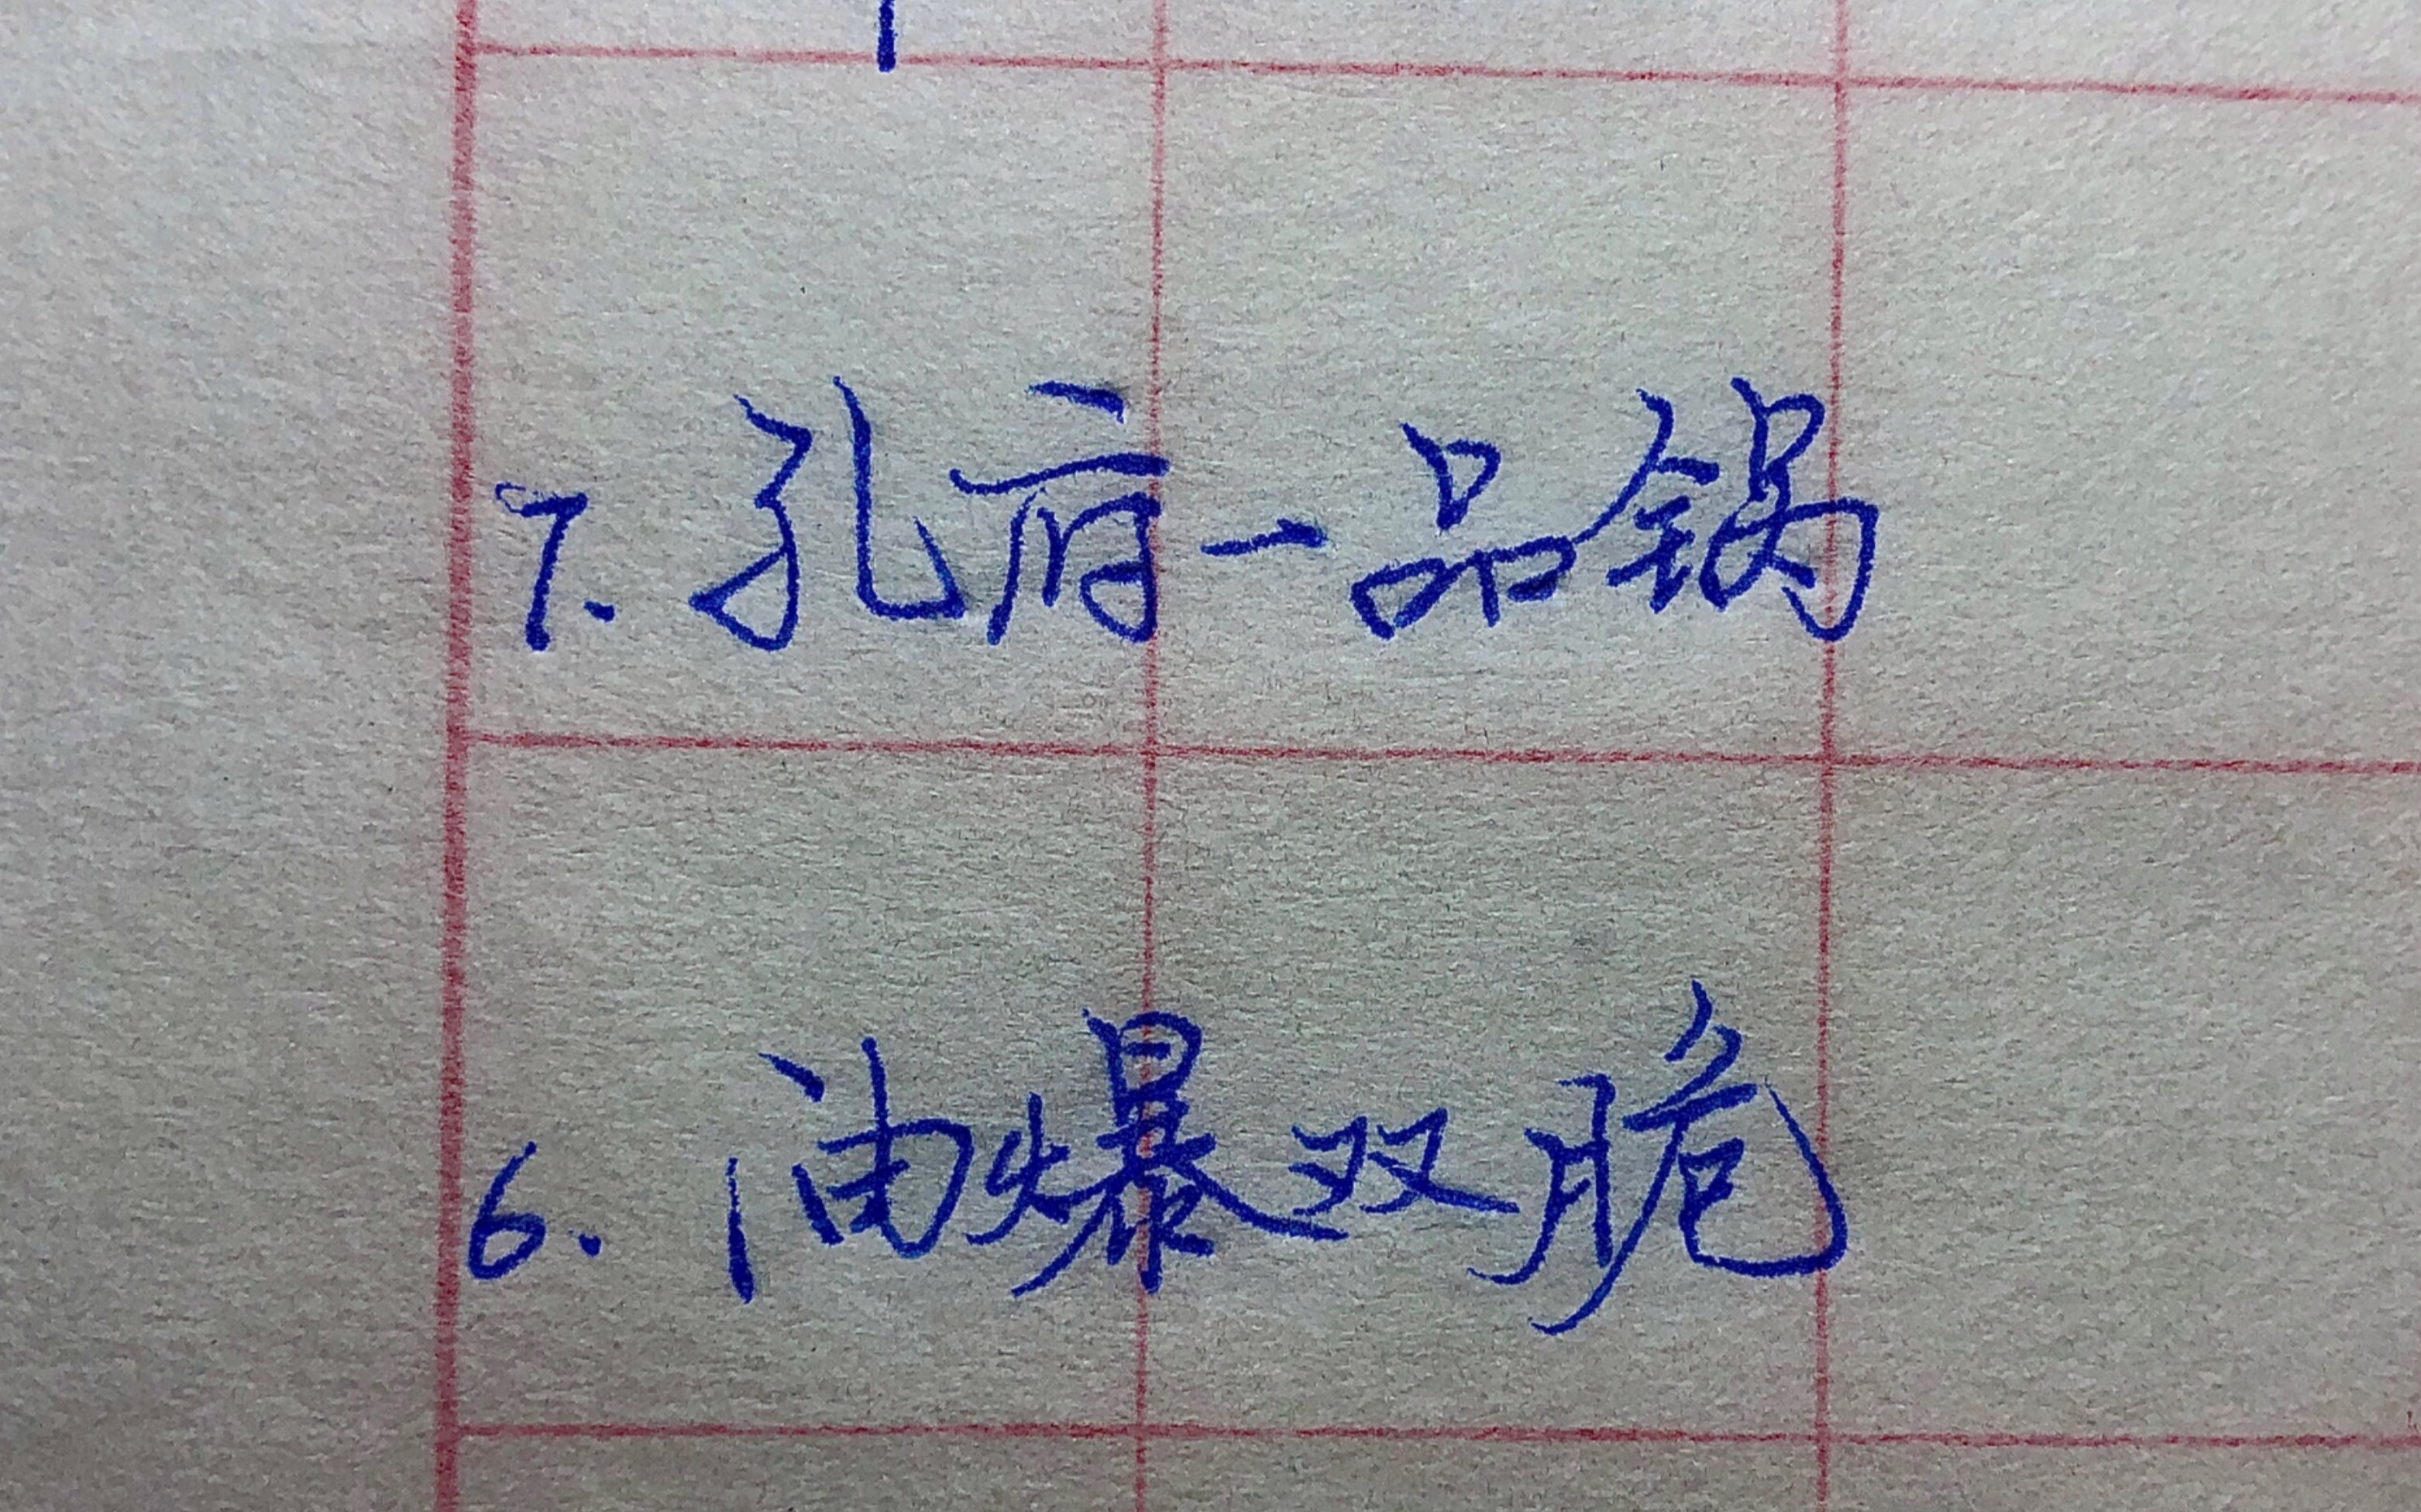 7. 孔府一品锅
6. 油爆双脆